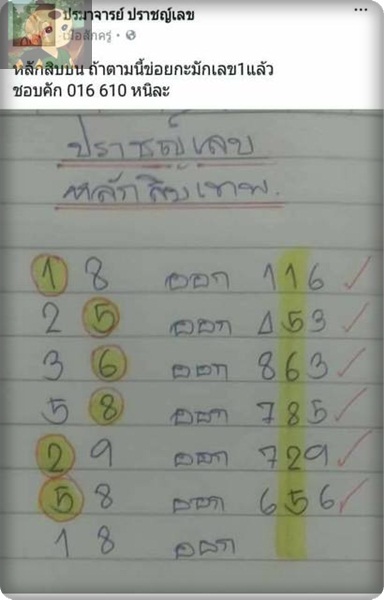 ปรมาจารย์ ปราชญ์เลข
เมื่อสักครู่ ·
หลักสิบบน ถ้าตามนี้ข่อยกะมักเลข1แล้ว
ชอบคัก 016 610 หนิละ
ปราชญ์เลข
หลักสิบเทพ.
1 8 ออก 116
2 5 ออก 453
3 6 ออก 863
5 8 ออก 785
2 9 ออก 729
5 8 ออก 656
1 8 ออก